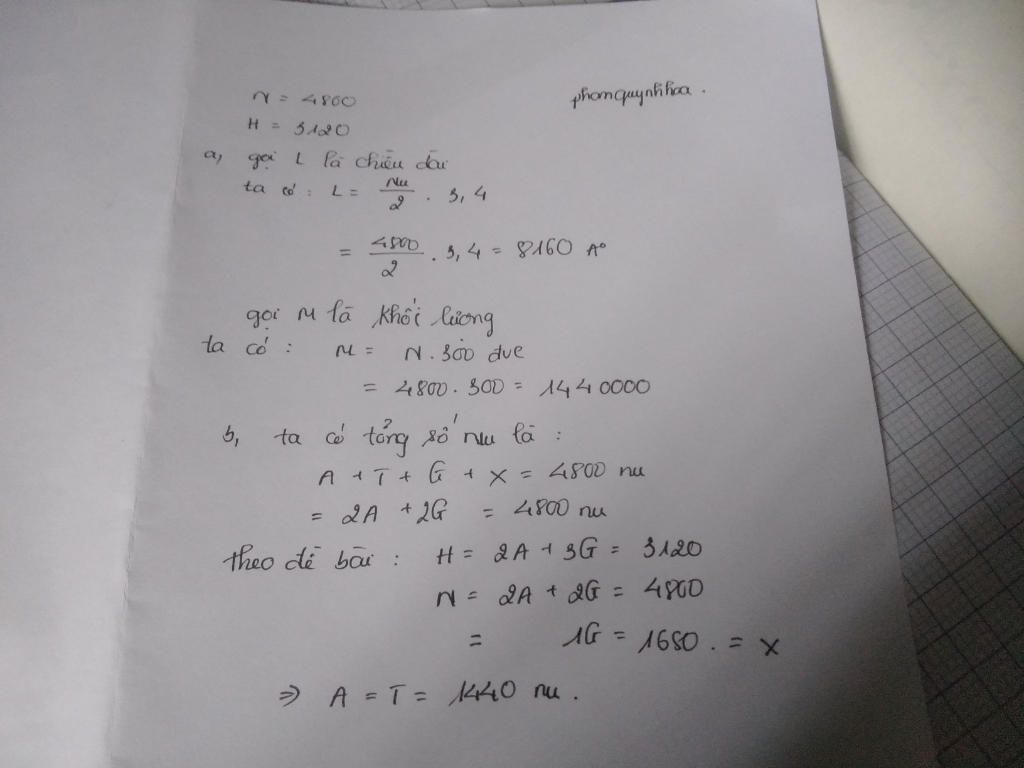 N = 4800
phamquynhhoa.
H = 3120
a, gọi L là chiều dài
ta có: L = Nu/2 . 3,4
= 4800/2 . 3,4 = 8160 A°
gọi M là khối lượng
ta có: M = N.300 đvc
= 4800.300 = 1440000
b, ta có tổng số nu là:
A + T + G + X = 4800 nu
= 2A + 2G = 4800 nu
theo đề bài: H = 2A + 3G = 3120
N = 2A + 2G = 4800
= 1G = 1680. = X
⇒ A = T = 1440 nu.